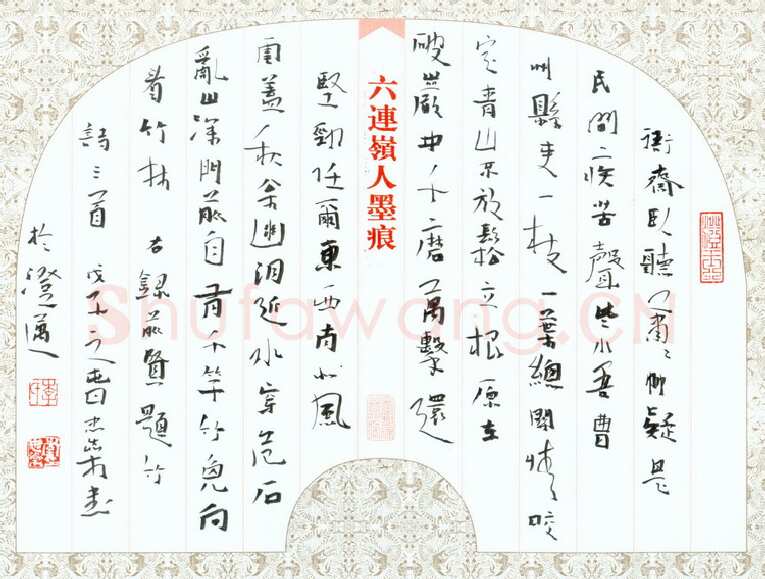 衙齋臥聽蕭〻竹疑是
民間疾苦聲些小吾曹
州縣吏一枝一葉總關情咬
定青山不放鬆立根原在
破巖中千磨萬擊還
六連嶺人墨痕
堅勁任爾東西南北風
蓋秋幽近水穿石
亂山深門前自有千竿竹免向
看竹林 右錄前賢題竹
詩三首 戊子之春日書
於澄邁
Shufawang.CN